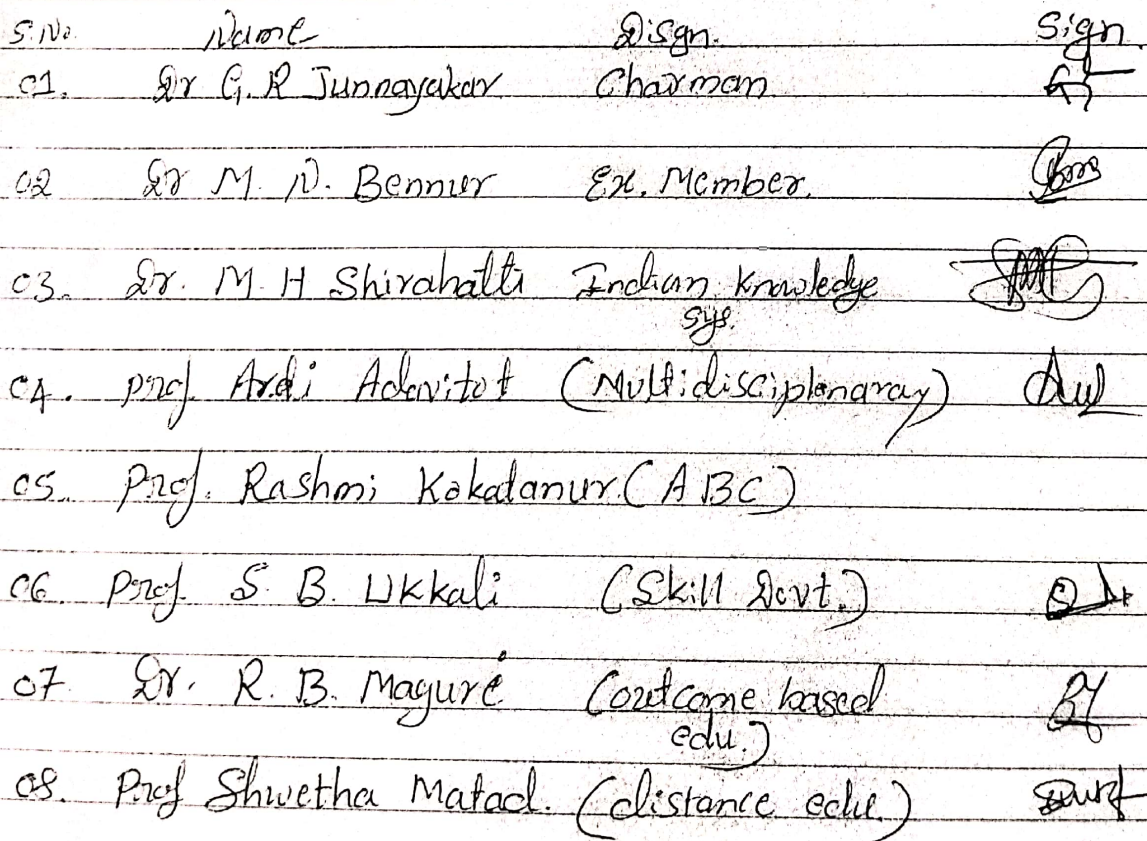 S.No. Name Disgn. Sign
01. Dr G. R Junnayakar Chairman
02 Dr M. N. Bennur Ex. Member.
03. Dr. M. H Shirahatti Indian Knowledge
sys.
04. Prof. Adavitot (Multidisciplenaray)
05. Prof. Rashmi Kokatanur. (ABC)
06. Prof. S. B. Ukkali (Skill Devt.)
07. Dr. R. B. Magure (outcome based
edu.)
08. Prof Shwetha Matad. (distance edu.)